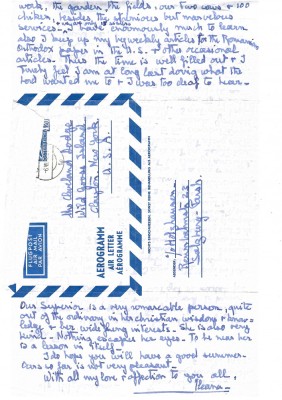 work, the garden, the fields, our two cows & 100
chicken, besides the glorious but
services. I have enormously much to learn
also I keep up my articles to the Romanian
Orthodox paper in the U.S. & other occasional
articles. Thus the time is well filled out & I
feel I am at long last doing what the
Lord wanted me to & I was too deaf to hear.
Cleveland
Wild Goose Island
Clayton New York
U.S.A.
MIT FLUGPOST
PAR AVION
AEROGRAMM
AIR LETTER
AÉROGRAMME
Salzburg-Parsch
Our Superior is a very remarcable person, quite
out of the ordinary in her christian wisdom & know-
ledge & her wide flung interests. She is also very
kind. Nothing escapes her eyes. To be near her
is a lesson in itself.
I do hope you will have a good summer.
Ours so far is not very pleasant.
With all my love & affection to you all,
Ileana.